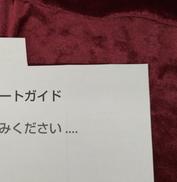 ートガイド
みください ....